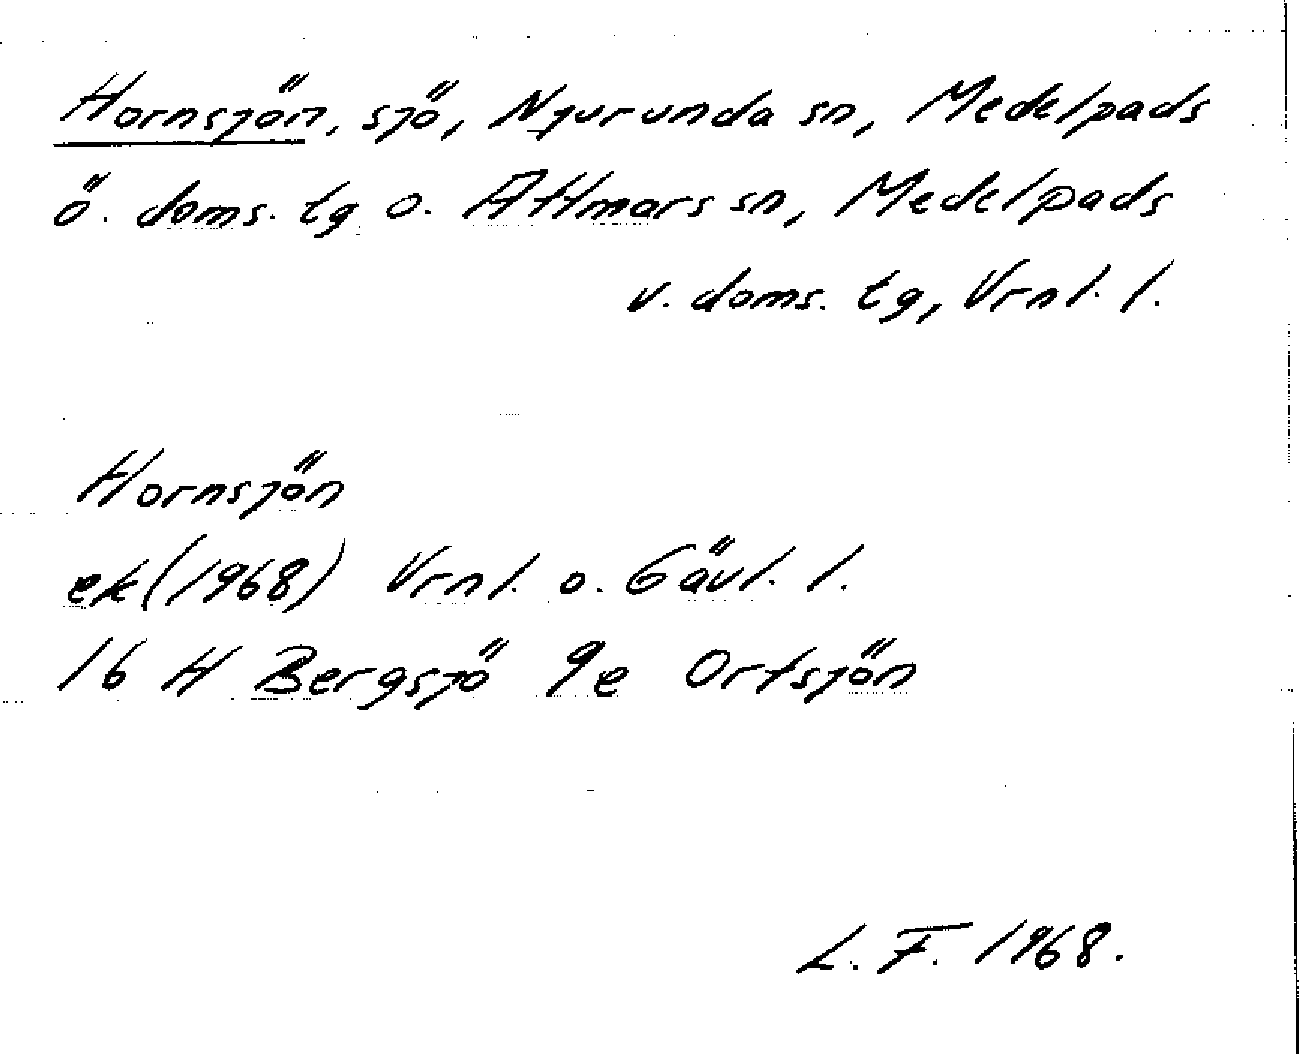 Hornsjön, sjö, Njurunda sn, Medelpads
ö. doms. tg o. Attmars sn, Medelpads
v. doms. tg, Vrnl. l.
Hornsjön
ek (1968) Vrnl. o. Gävl. l.
16 H Bergsjö 9e Ortsjön
L. F. 1968.